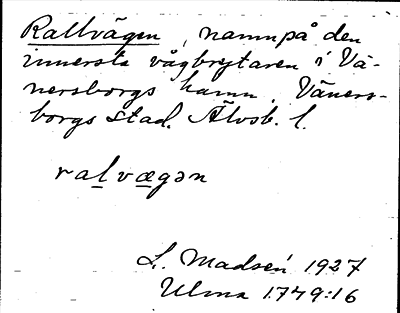 Rallvägen, namn på den
innersta vågbrytaren i Vä-
nersborgs hamn. Väners-
borgs stad. Älvsb. l.
ralvægən
L. Madsén 1927
Ulma 1779:16